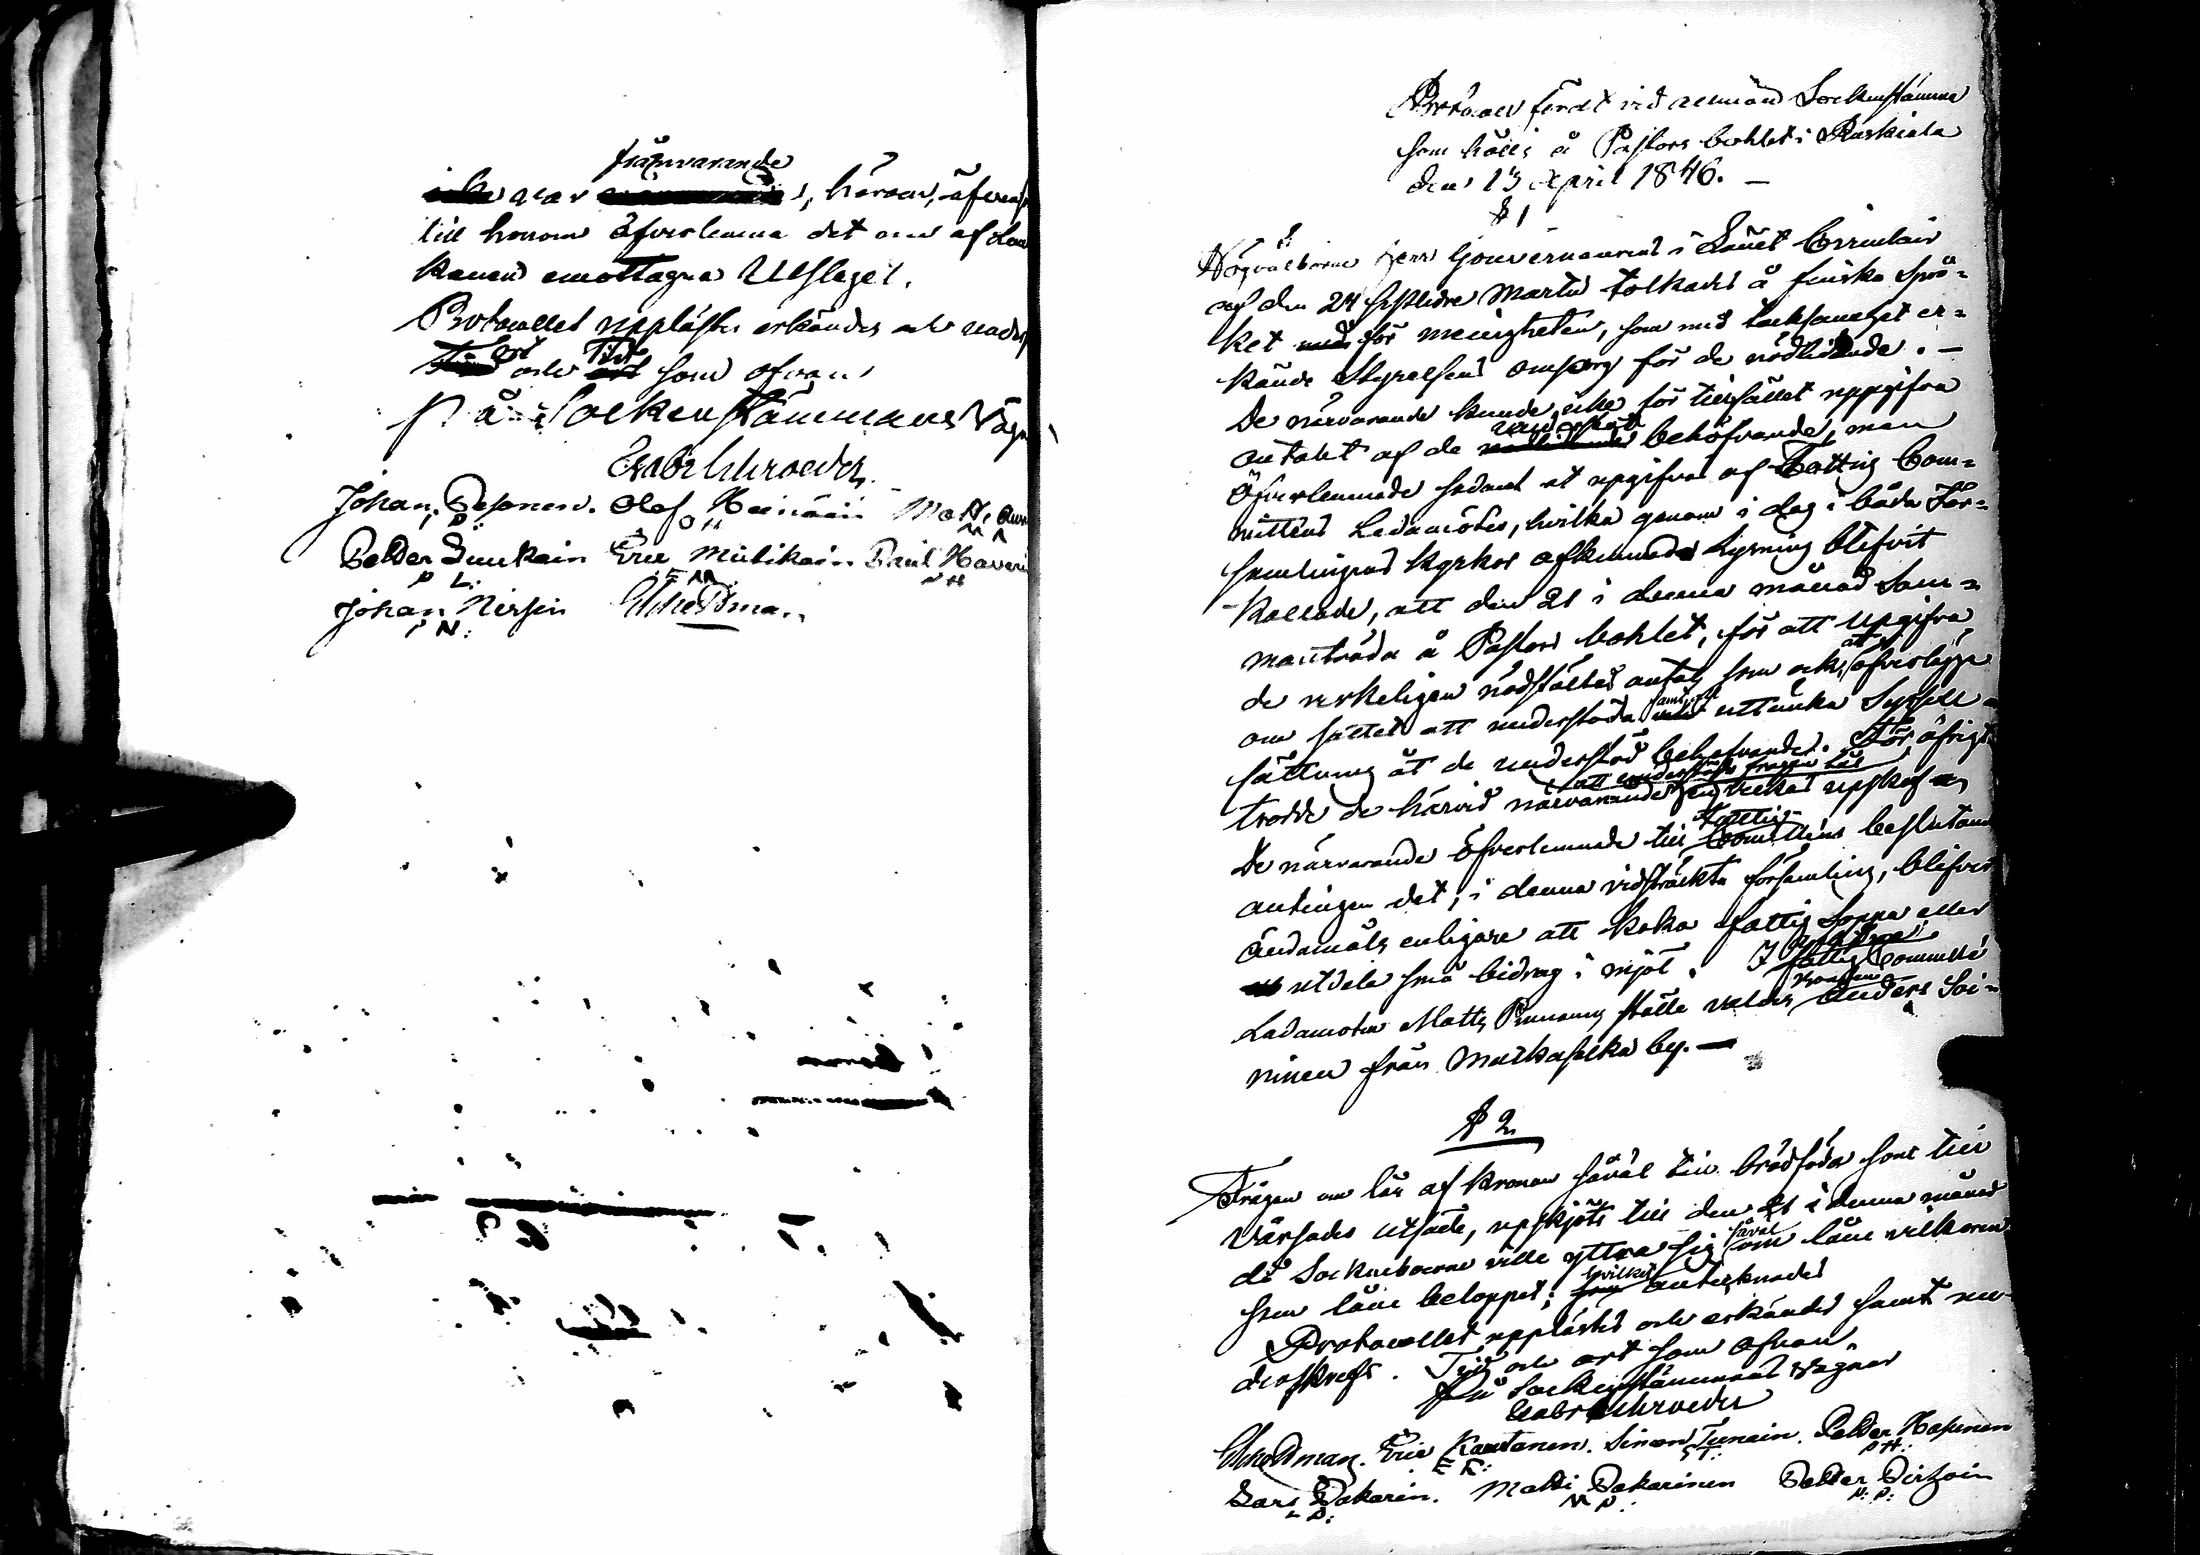 frånvarande
icke var , härom, äfvens
till honom öfverlemna det om af dem
Kanen emottagna Utslaget.
Protocollet upplästes erkändes och unders
ort Tid
Tid och ort som ofvan
På Sockenstämmans Vägn
Gabr Schroeder
Johan Pesonen. Olof Heinäin Matti
P: O H M
Petter Luukain Eric Mielikäin Paul Haveri
P L: E M P H
Johan Hirsin
N:
Protocoll fördt vid allmän Sockenstämma
som hölls å Pastors bohlet i Ruskiala
den 13 April 1846. —
§ 1
Högvälborne Herr Gouverneurens i Länet Circulair
af den 24 sistledne Martii tolkades å finska språ=
ket med för menigheten, som med tacksamhet er=
kände Styrelsens omsorg för de nödlidande. —
De närvarande kunde icke för tillfället uppgifva
antalet af de behöfvande, men
öfverlemnade sådant at uppgifvas af Fattig Com=
mitténs Ledamöter, hvilka genom i dag i båda För=
samlingens kyrkor afkunnad Lysning blifvit
kallade, att den 21 i denna månad Sam=
manträda å Pastors bohlet, för att Upgifva
at
de verkeligen nödstäldes antal som ock, öfverlägga
samt
om sättet att understöda med uttänka Syssell
sättning åt de understöd behöfvande. För öfrigt
att understöds frågan
trodde de härvid närvarande uppskof
Fattig
De närvarande öfverlemnade till Committéns beslutan
antingen det, i denna vidsträckta församling, blifver
ändamåls enligare att koka fattig Soppa eller
utdela små bidrag i mjöl. I
fattig Committé
Ledamoten Matts Pennanens ställe valdes Anders Soi-
ninen från Matkaselkä by. —
§ 2
Frågan om lån af Kronan såväl till brödföda som till
Vårsädes utsäde, uppskjöts till den 21 i denna månad
såväl
då Sockneboerne ville yttra sig om låne vilkoren
hvilket
som låne beloppet; som antecknades
Protocollet upplästes och erkändes samt un-
derskrefs. Tid och ort som ofvan.
På Sockenstämmans vägnar
Gabr Schroeder
Eric Kautanen. Simon Turnain. Petter Hasunen
E K: S T: P H:
Lars Pakarin. Matti Pakarinen Petter Pirhoin
L P: M P: P: P: